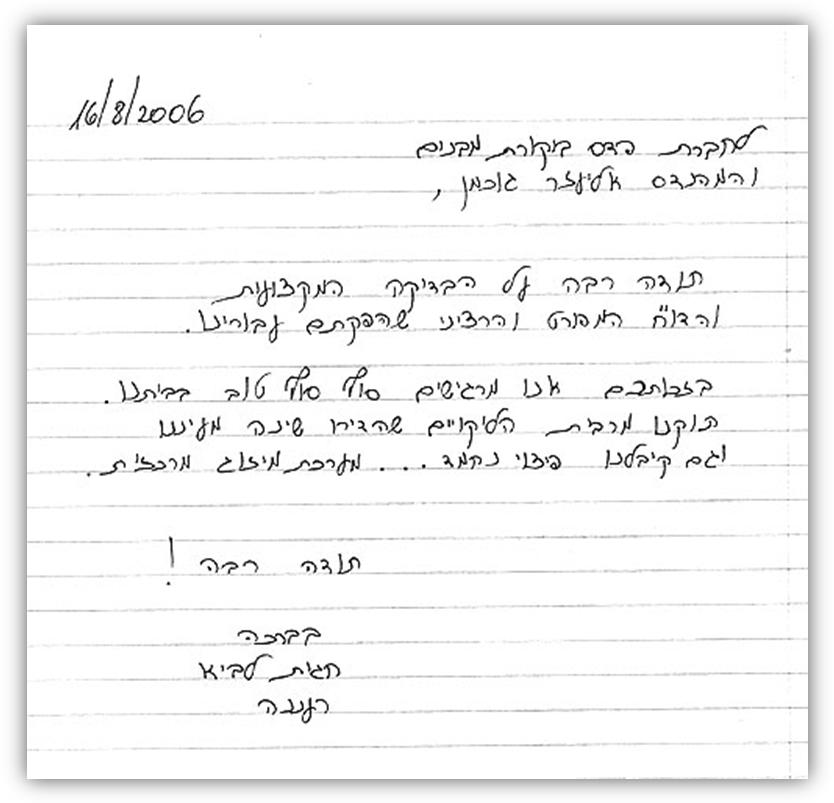 16/8/2006
לחברת פדס ביקורת מבנים
והמהנדס אליעזר גוכמן,
תודה רבה על הבדיקה המקצועית
והדו"ח המפורט והרציני שהפקתם עבורינו.
בזכותכם אנו מרגישים סוף סוף טוב בביתנו.
תוקנו מרבית הליקויים שהדירו שינה מעיננו
וגם קיבלנו פיצוי נחמד .... מערכת מיזוג מרכזית.
תודה רבה!
בברכה
חגית לביא
רעננה